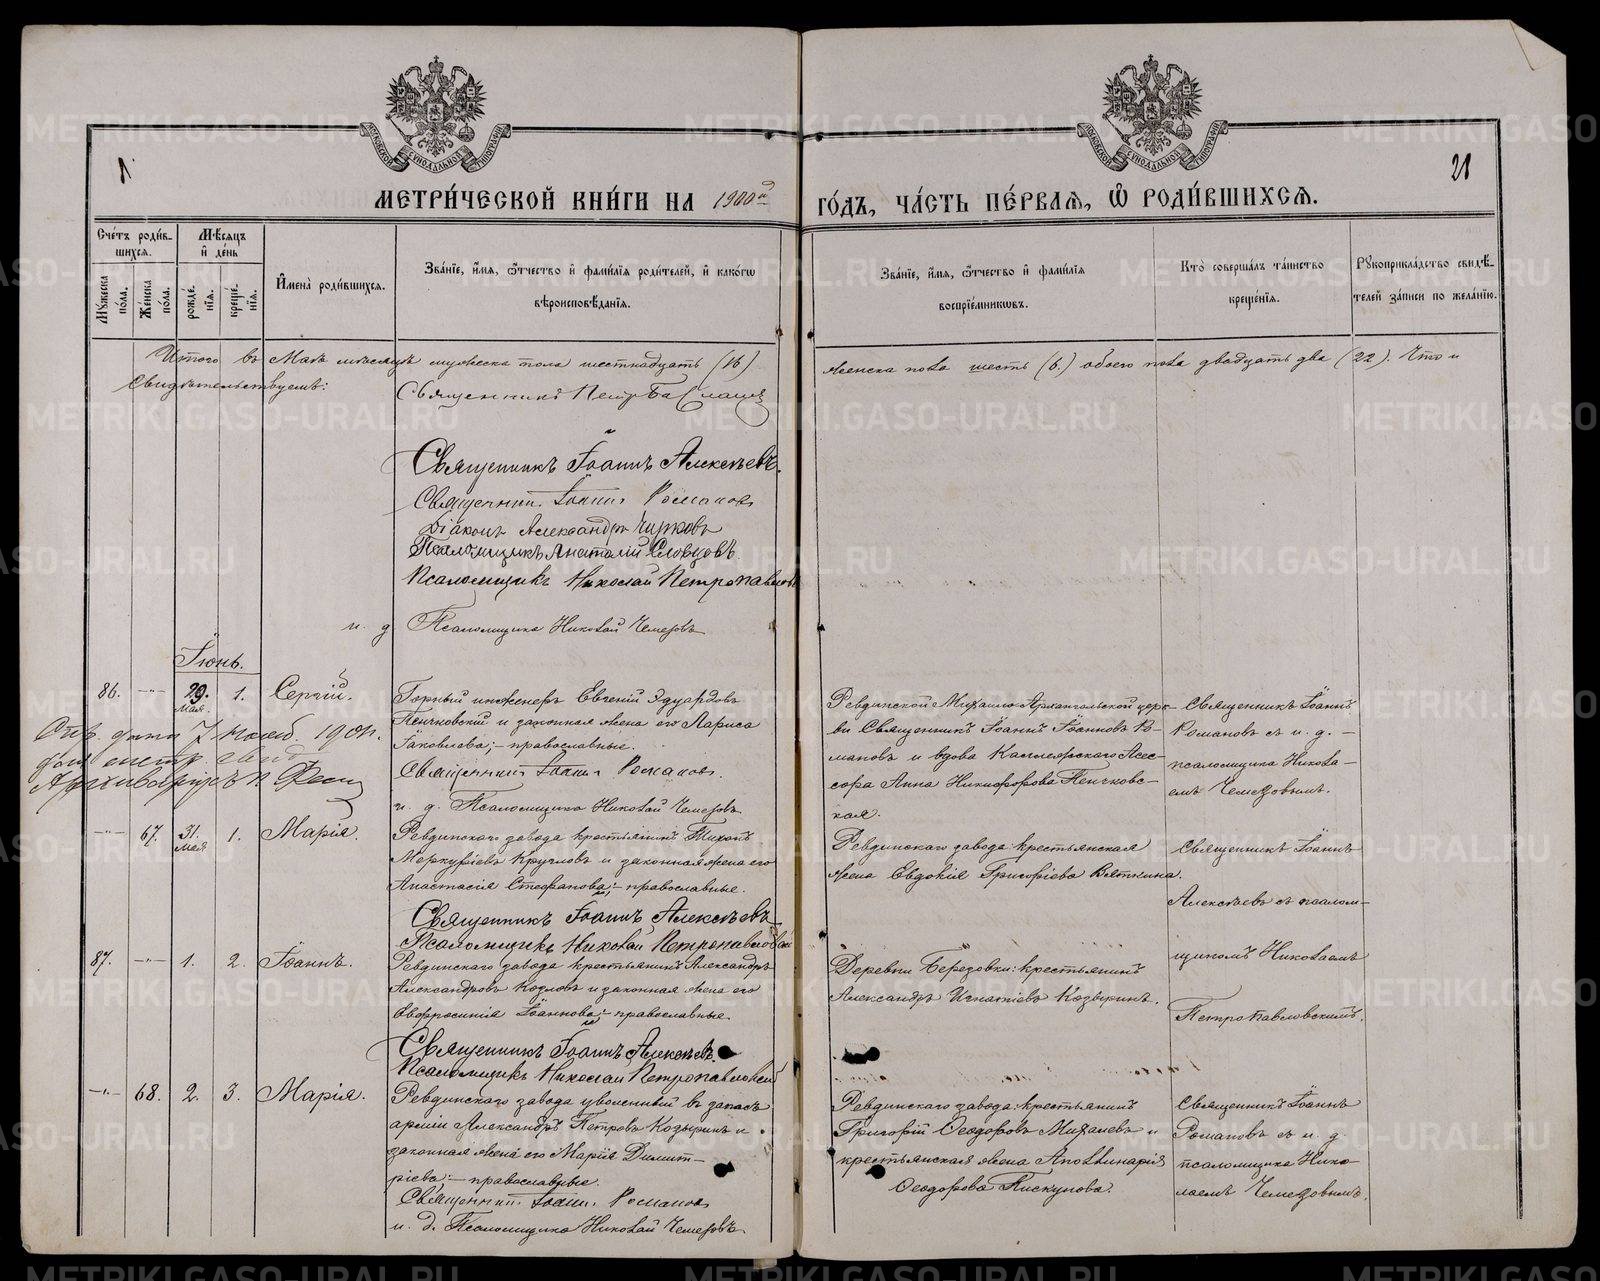 МЕТРИ́ЧЕСКОЙ КНИ́ГИ НА 1900й ГО́ДЪ, ЧА́СТЬ ПЕ́РВАѦ, Ѿ РОДИ́ВШИХСѦ.
21
Сче́тъ роди́в-
шихсѧ.
Мѣ́сѧцъ
и҆ де́нь
Мꙋ́жеска
по́ла.
Же́нска
по́ла.
рожде́-
нїѧ.
креще́-
нїѧ.
И҆мена̀ роди́вшихсѧ.
Зва́нїе, и҆́мѧ, ѻ҆́тчество и҆ фами́лїѧ роди́телей, и҆ како́гѡ
вѣроисповѣ́данїѧ.
Зва́нїе, и҆́мѧ, ѻ҆́тчество и҆ фами́лїѧ
воспрїе́мникѡвъ.
Кто̀ соверша́лъ та́инство
креще́нїѧ.
Рꙋкоприкла́дство свидѣ́-
телей за́писи по жела́нїю.
Итого въ Маѣ мѣсяцѣ мужеска пола шестнадцать (16)
женска пола шесть (6.) обоего пола двадцать два (22). Что и
Свидѣтельствуемъ:
Священникъ Петръ
Священникъ Іоаннъ Алексѣевъ.
Священник Іоаннъ Романовъ
Діаконъ Александръ Чирковъ
Псаломщикъ Анатолій Словцовъ.
Псаломщикъ Николай Петропавловскій
и. д. Псаломщика Николай Чемезовъ
Іюнь.
86. 29. мая. 1. Сергій.
Горный инженеръ Евгеній Эдуардовъ
Пенчковскій и законная жена его Лариса
Іаковлева; - православные.
Священник Іоаннъ Романовъ.
и. д. Псаломщика Николай Чемезовъ
Ревдинской Михаило-Архангельской церк-
ви Священникъ Іоаннъ Іоанновъ Ро-
мановъ и вдова Коллежскаго Асес-
сора Анна Никифорова Пенчковс-
кая.
Священникъ Іоаннъ
Романовъ съ и. д. -
псаломщика Никола-
емъ Чемезовымъ.
7 нояб. 1901г.
67. 31. мая 1. Марія.
Ревдинскаго завода крестьянинъ Тихонъ
Меркурьевъ Кругловъ и законная жена его
Анастасія Стефанова; - православные.
Священникъ Іоаннъ Алексѣевъ
Псаломщикъ Николай Петропавловскій
Ревдинскаго завода крестьянская
жена Евдокія Григорьева Вяткина.
Священникъ Іоаннъ
Алексѣевъ съ псалом-
щикомъ Николаемъ
Петропавловскимъ.
87. 1. 2. Іоаннъ.
Ревдинскаго завода крестьянинъ Александръ
Александровъ Козловъ и законная жена его
Евфросинія Іоаннова; - православные.
Священникъ Іоаннъ Алексѣевъ.
Псаломщикъ Николай Петропавловскій
Деревни Березовки: крестьянинъ
Александръ Игнатіевъ Козыринъ.
68. 2. 3. Марія.
Ревдинскаго завода уволенный въ запасъ
арміи Александръ Петровъ Козыринъ и
законная жена его Марія Димит-
ріева; - православные.
Священник Іоаннъ Романовъ
и. д. Псаломщика Николай Чемезовъ
Ревдинскаго завода: крестьянинъ
Григорій Ѳеодоровъ Михалевъ и
крестьянская жена Аполлинарія
Ѳеодорова Пискунова.
Священникъ Іоаннъ
Романовъ съ и. д.
псаломщика Нико-
лаемъ Чемезовымъ.
METRIKI.GASO-URAL.RU